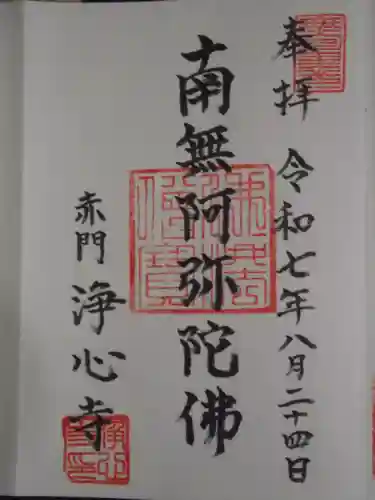 奉拝 令和七年八月二十四日
南無阿弥陀佛
赤門 浄心寺